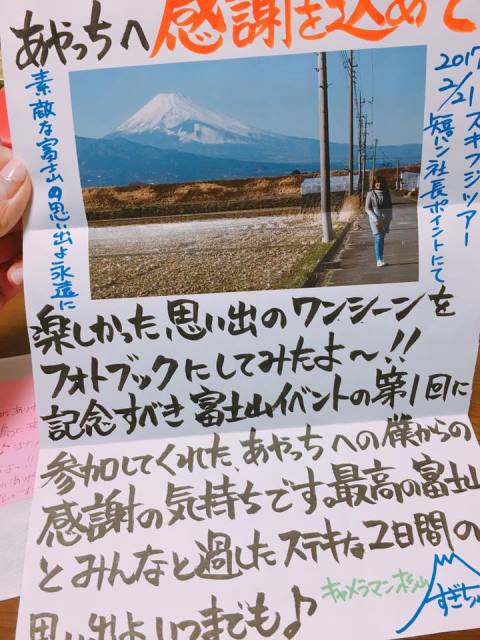 あやっちへ 感謝を込めて
2017 2/21 スキフジツアー
短パン社長ポイントにて
素敵な富士山の思い出よ永遠に
楽しかった、思い出のワンシーンを
フォトブックにしてみたよ〜!!
記念すべき富士山イベントの第1回に
参加してくれた、あやっちへの僕からの
感謝の気持ちです。最高の富士山
とみんなと過したステキな2日間の
思い出よいつまでも♪
キャメラマン杉山
すぎちゃん